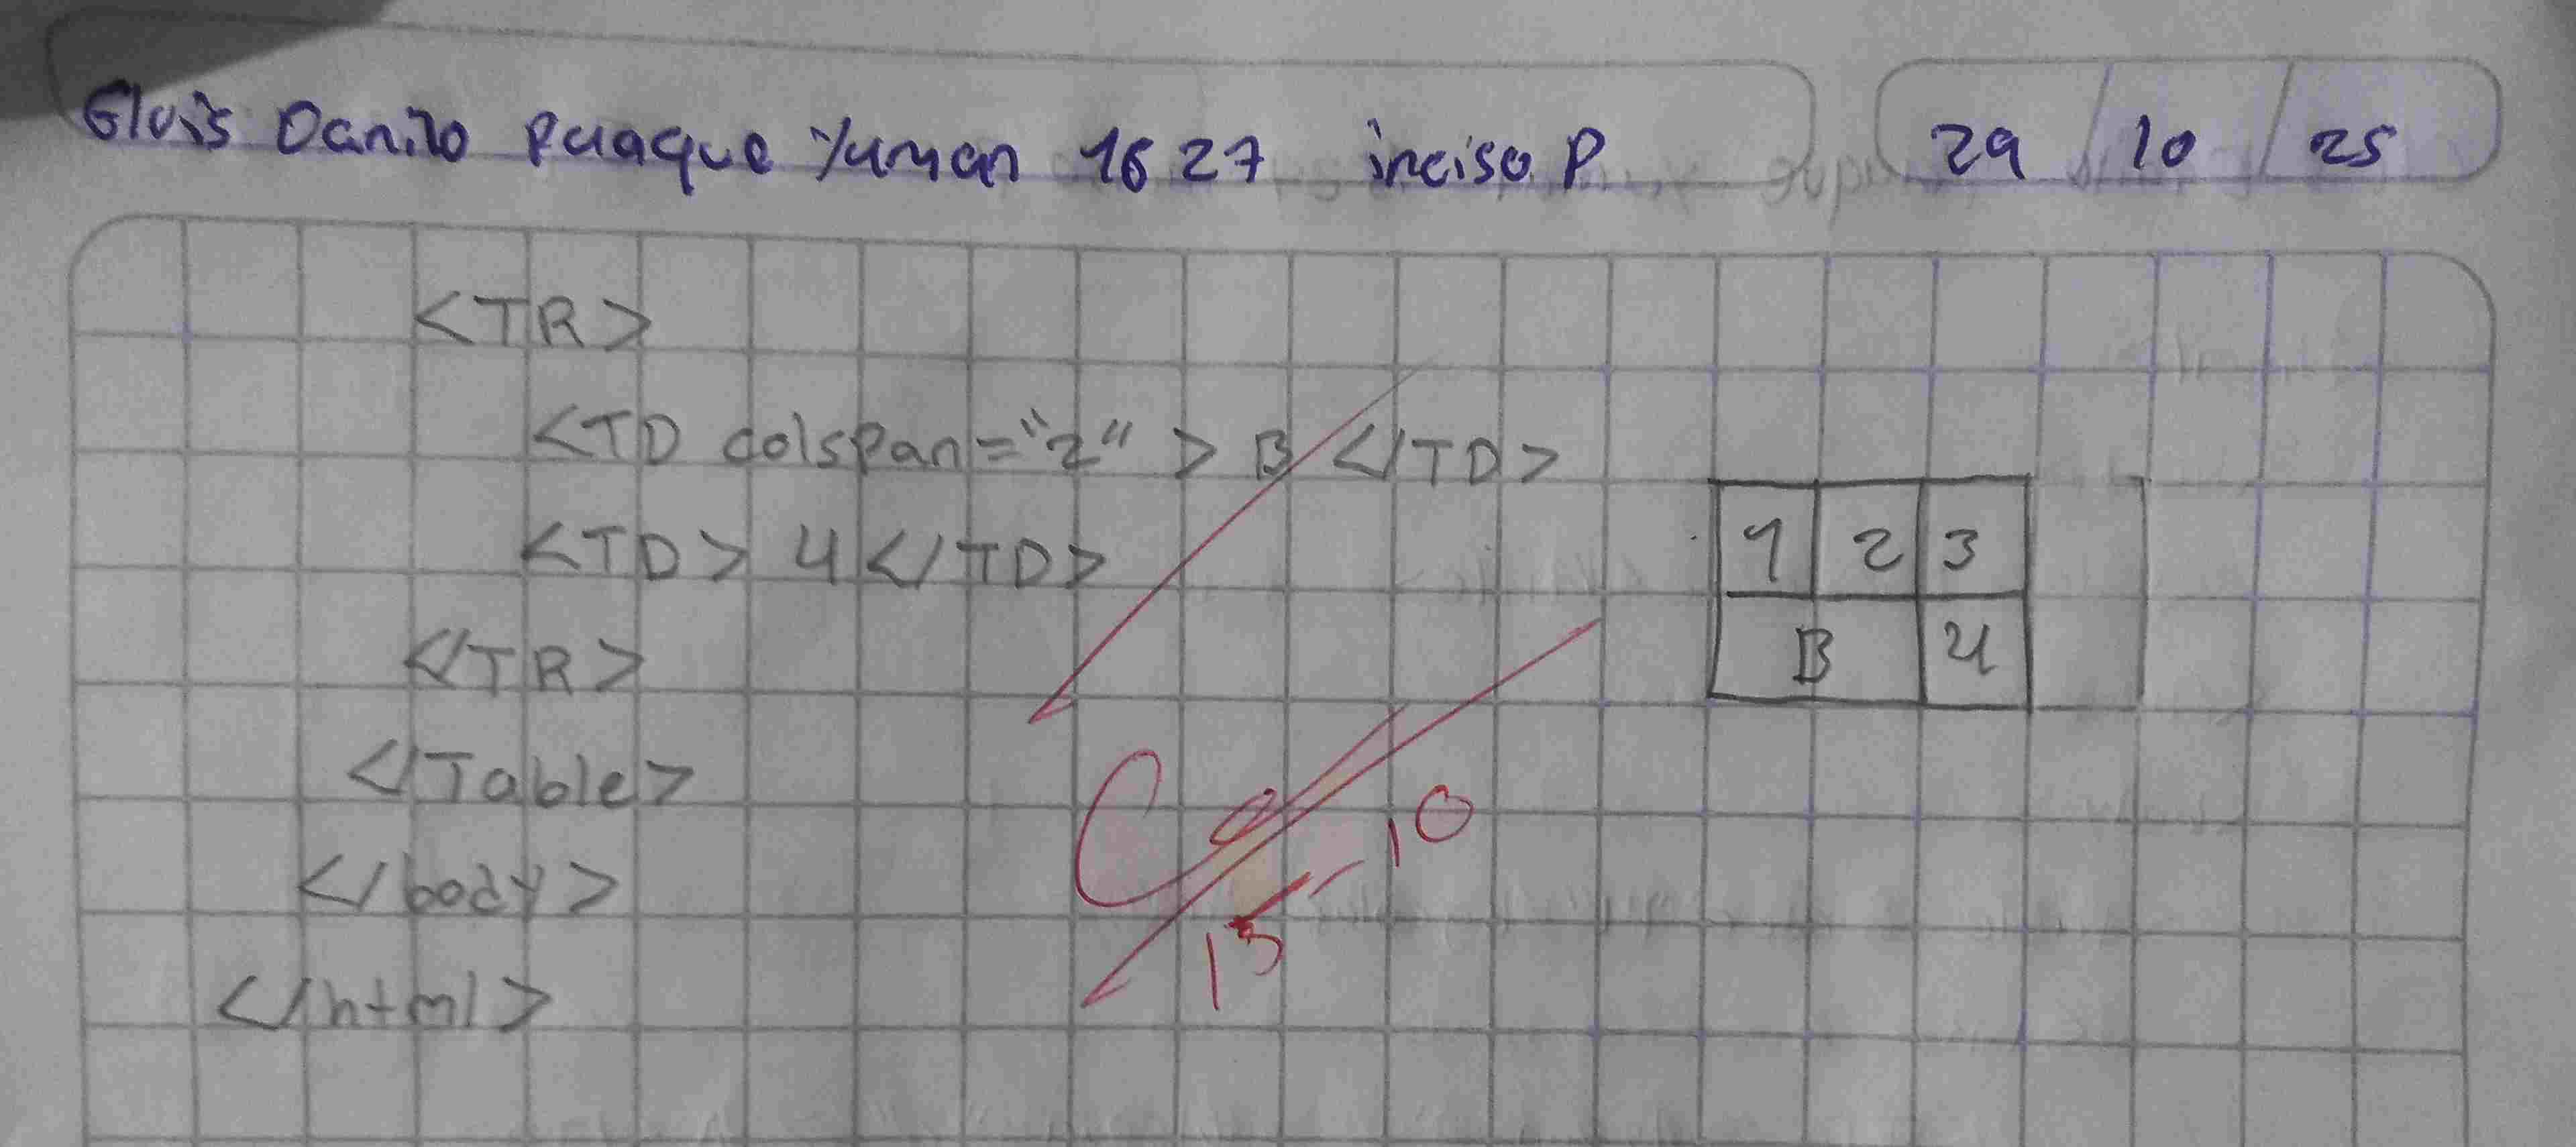 Elvis Danilo Puaque Yuman 1627 inciso P 29 / 10 / 25
<TR>
<TD colspan="2" > B </TD>
<TD> 4 </TD>
</TR>
</Table>
</body>
</html>
1 2 3
B 4
10
15